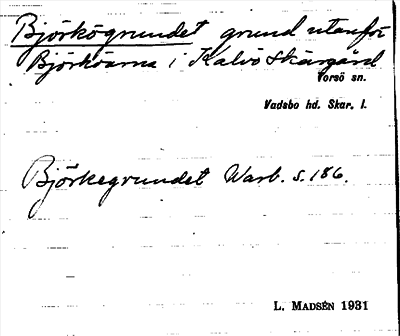 Björkögrundet grund utanför
Björköarna i Kalvö Skärgård
Torsö sn.
Vadsbo hd. Skar. l.
Björkegrundet Warb. s. 186.
L. MADSÉN 1931